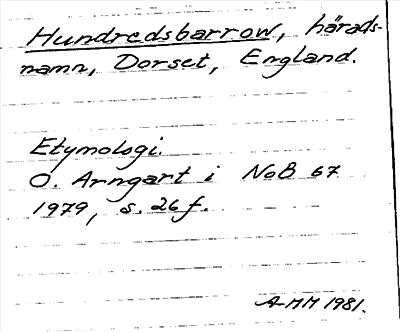 Hundredsbarrow, härads-
namn, Dorset, England.
Etymologi.
O. Arngart i NoB 67
1979, s. 26 f.
AMM 1981.